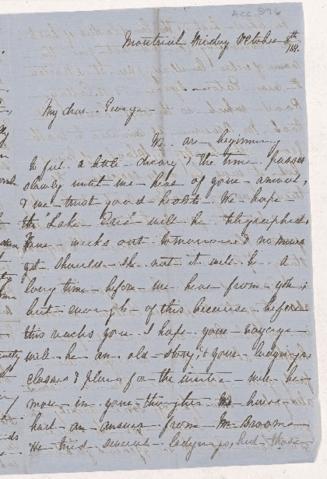 Acc. 896
Montreal Friday October 8th
My dear George
We are beginning
to feel a little dreary & the time passes
slowly until we hear of your arrival,
& we trust good health. We hope
the "Lake Erie" will be telegraphed
weeks out tomorrow &
should she not it will be a
long time before we hear from you
but enough of this because before
this reaches you I hope your voyage
will be an old story, & your lodgings
classes & plans for the winter will be
more in your thoughts. We have
had an answer from Mr Broome
He tried several lodgings, but those